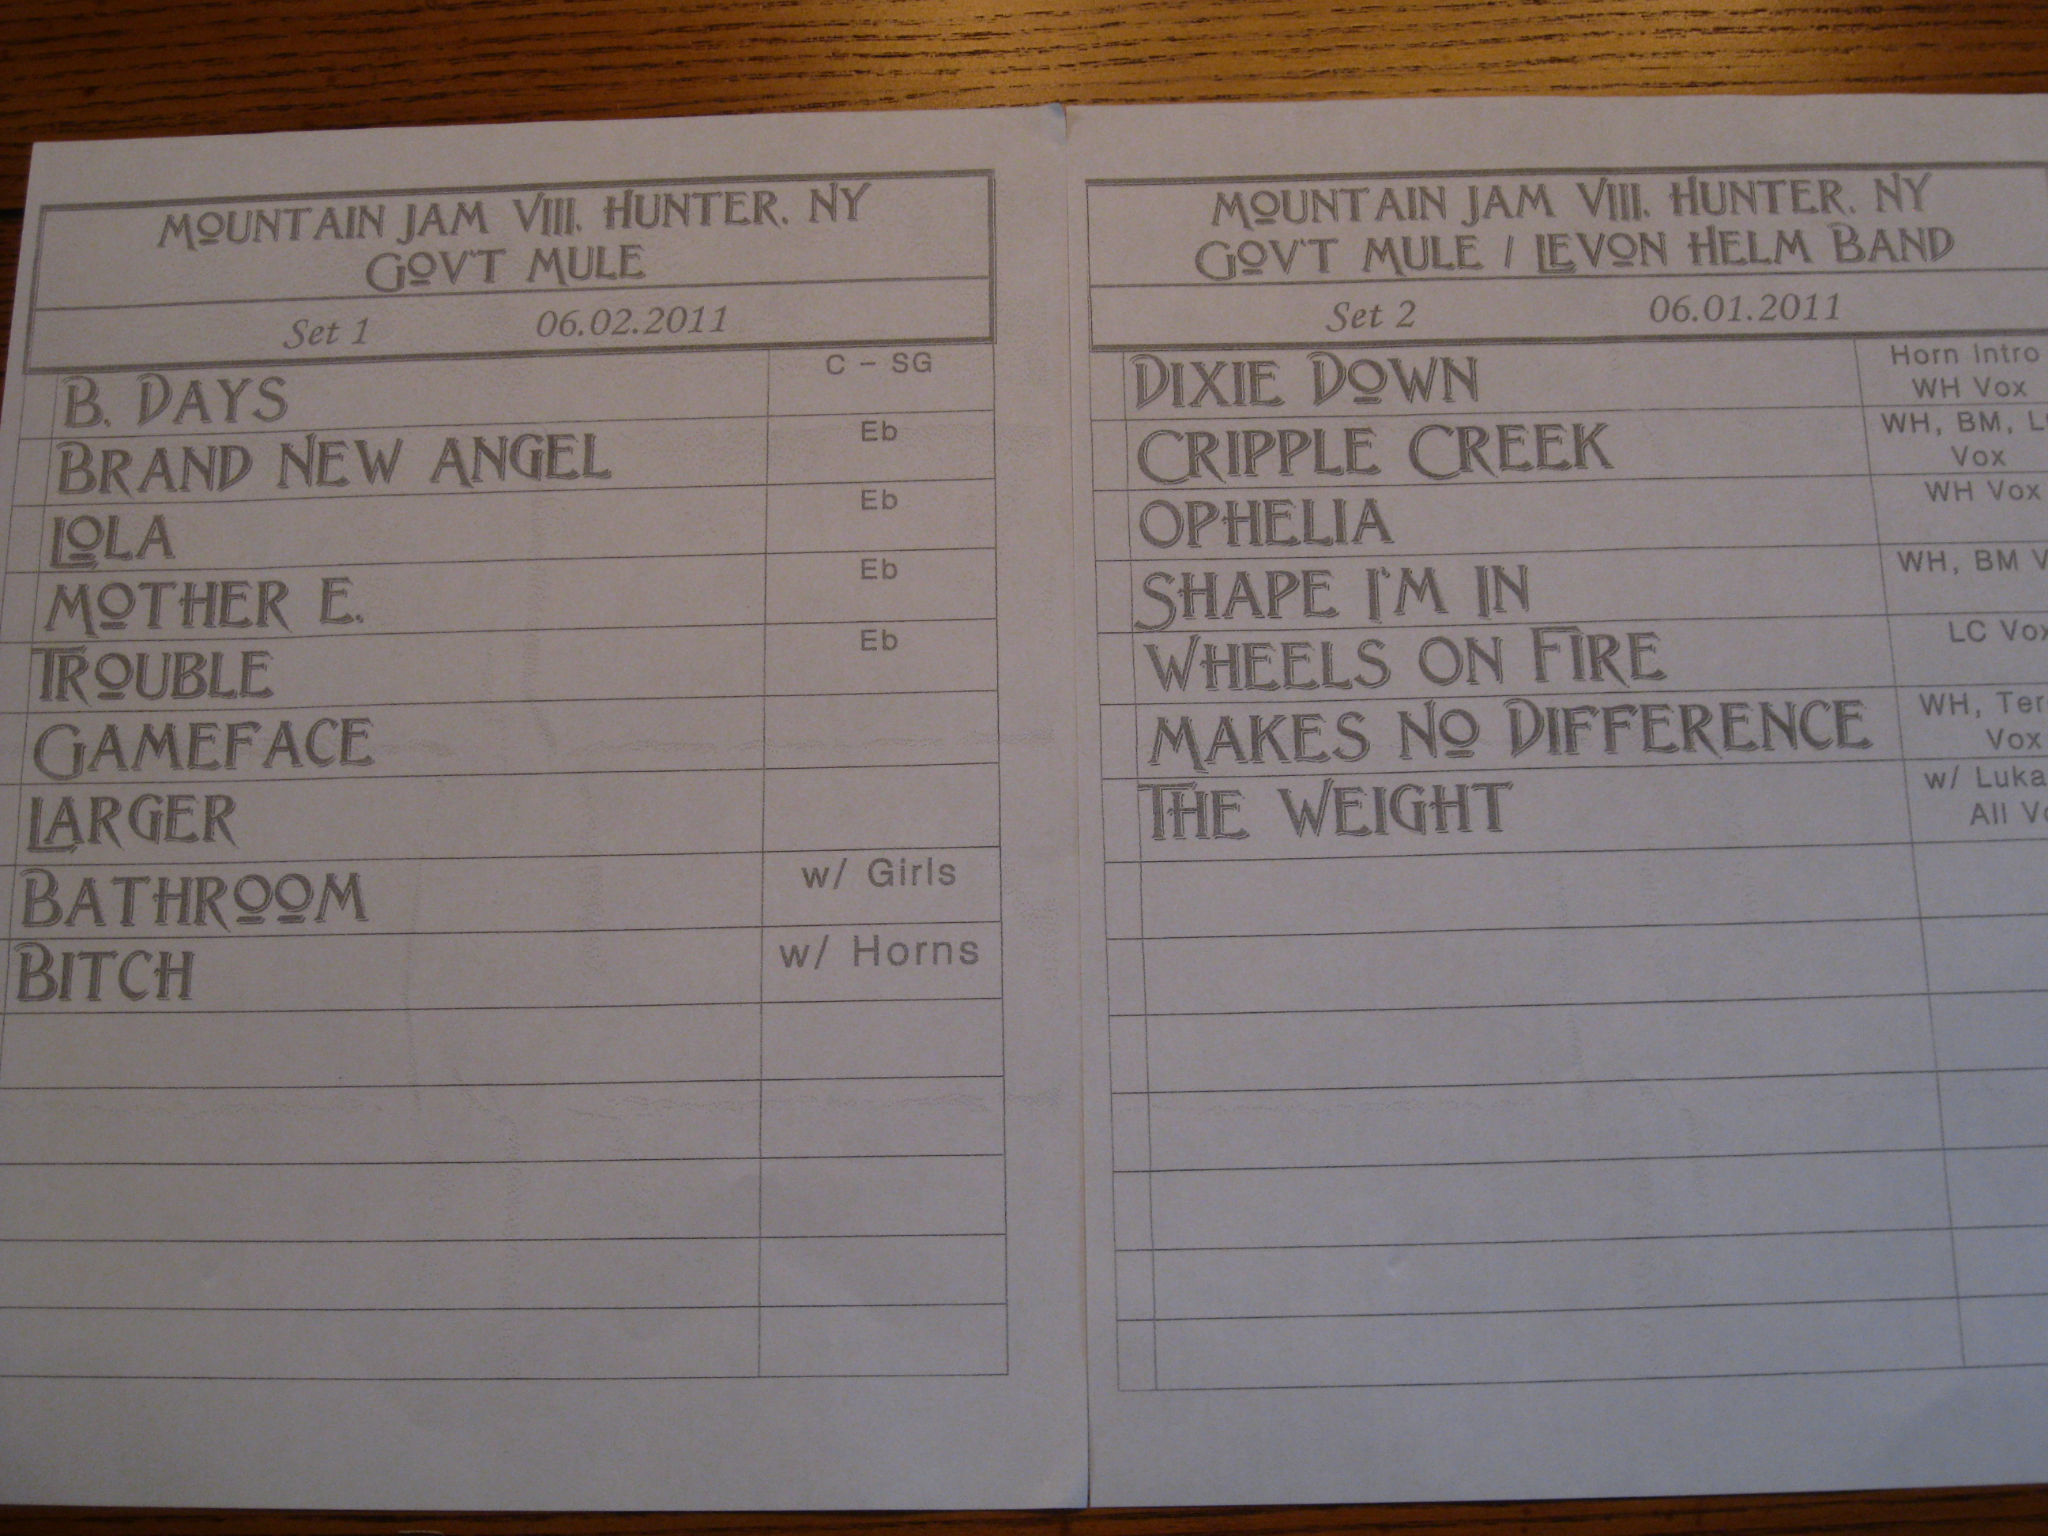 MOUNTAIN JAM VIII, HUNTER, NY
GOV'T MULE
Set 1 06.02.2011
B. DAYS C – SG
BRAND NEW ANGEL Eb
LOLA Eb
MOTHER E. Eb
TROUBLE Eb
GAMEFACE
LARGER
BATHROOM w/ Girls
BITCH w/ Horns
MOUNTAIN JAM VIII, HUNTER, NY
GOV'T MULE / LEVON HELM BAND
Set 2 06.01.2011
DIXIE DOWN Horn Intro
WH Vox
CRIPPLE CREEK WH, BM,
Vox
OPHELIA WH Vox
SHAPE I'M IN WH, BM
WHEELS ON FIRE LC Vox
MAKES NO DIFFERENCE WH,
Vox
THE WEIGHT w/
All